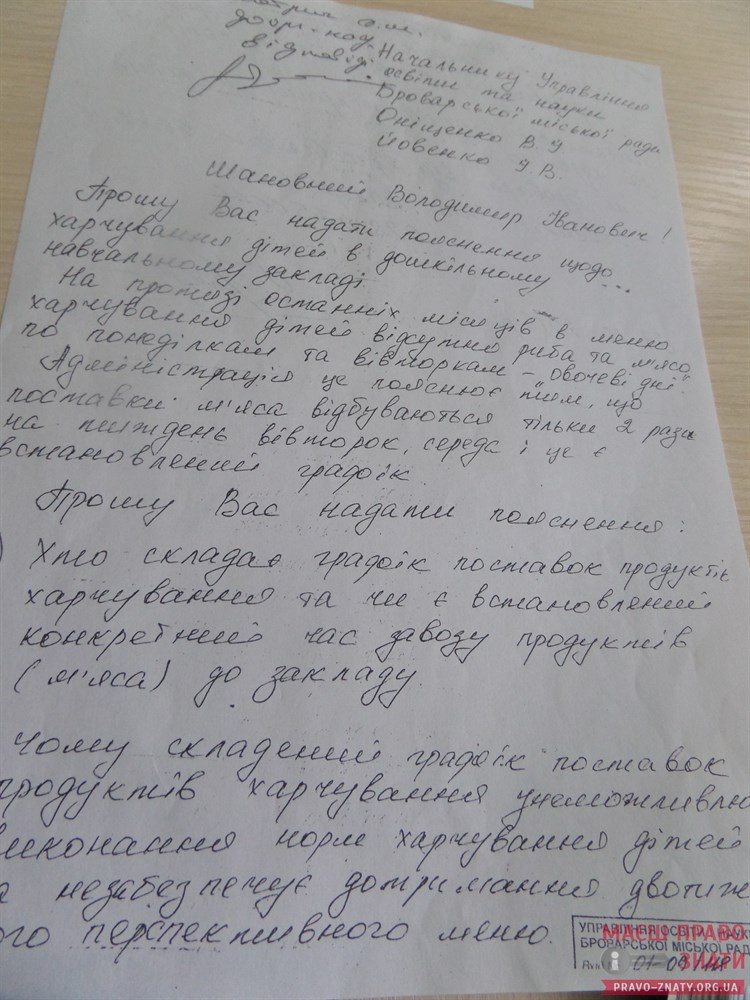 доош. кад.
відповіді
Начальнику Управління
освіти та науки
Броварської міської ради
Оніщенко В. І
Йовенко І. В.
Шановний Володимир Іванович!
Прошу Вас надати пояснення щодо
харчування дітей в дошкільному
навчальному закладі...
На протязі останніх місяців в меню
харчування дітей відсутня риба та м'ясо
по понеділкам та вівторкам – "овочеві дні".
Адміністрація це пояснює тим, що
поставки м'яса відбуваються тільки 2 рази
на тиждень вівторок, середа і це є
встановлений графік.
Прошу Вас надати пояснення:
) Хто складає графік поставок продуктів
харчування та чи є встановлений
конкретний час завозу продуктів
(м'яса) до закладу.
Чому складений графік поставок
продуктів харчування унеможливлю
виконання норм харчування дітей
а незабезпечує дотримання двотиж
ого перспективного меню.
УПРАВЛІННЯ ОСВІТИ НАУК
БРОВАРСЬКОЇ МІСЬКОЇ РАД
01-09
МАЄШ ПРАВО
ЗНАТИ
PRAVO-ZNATY.ORG.UA